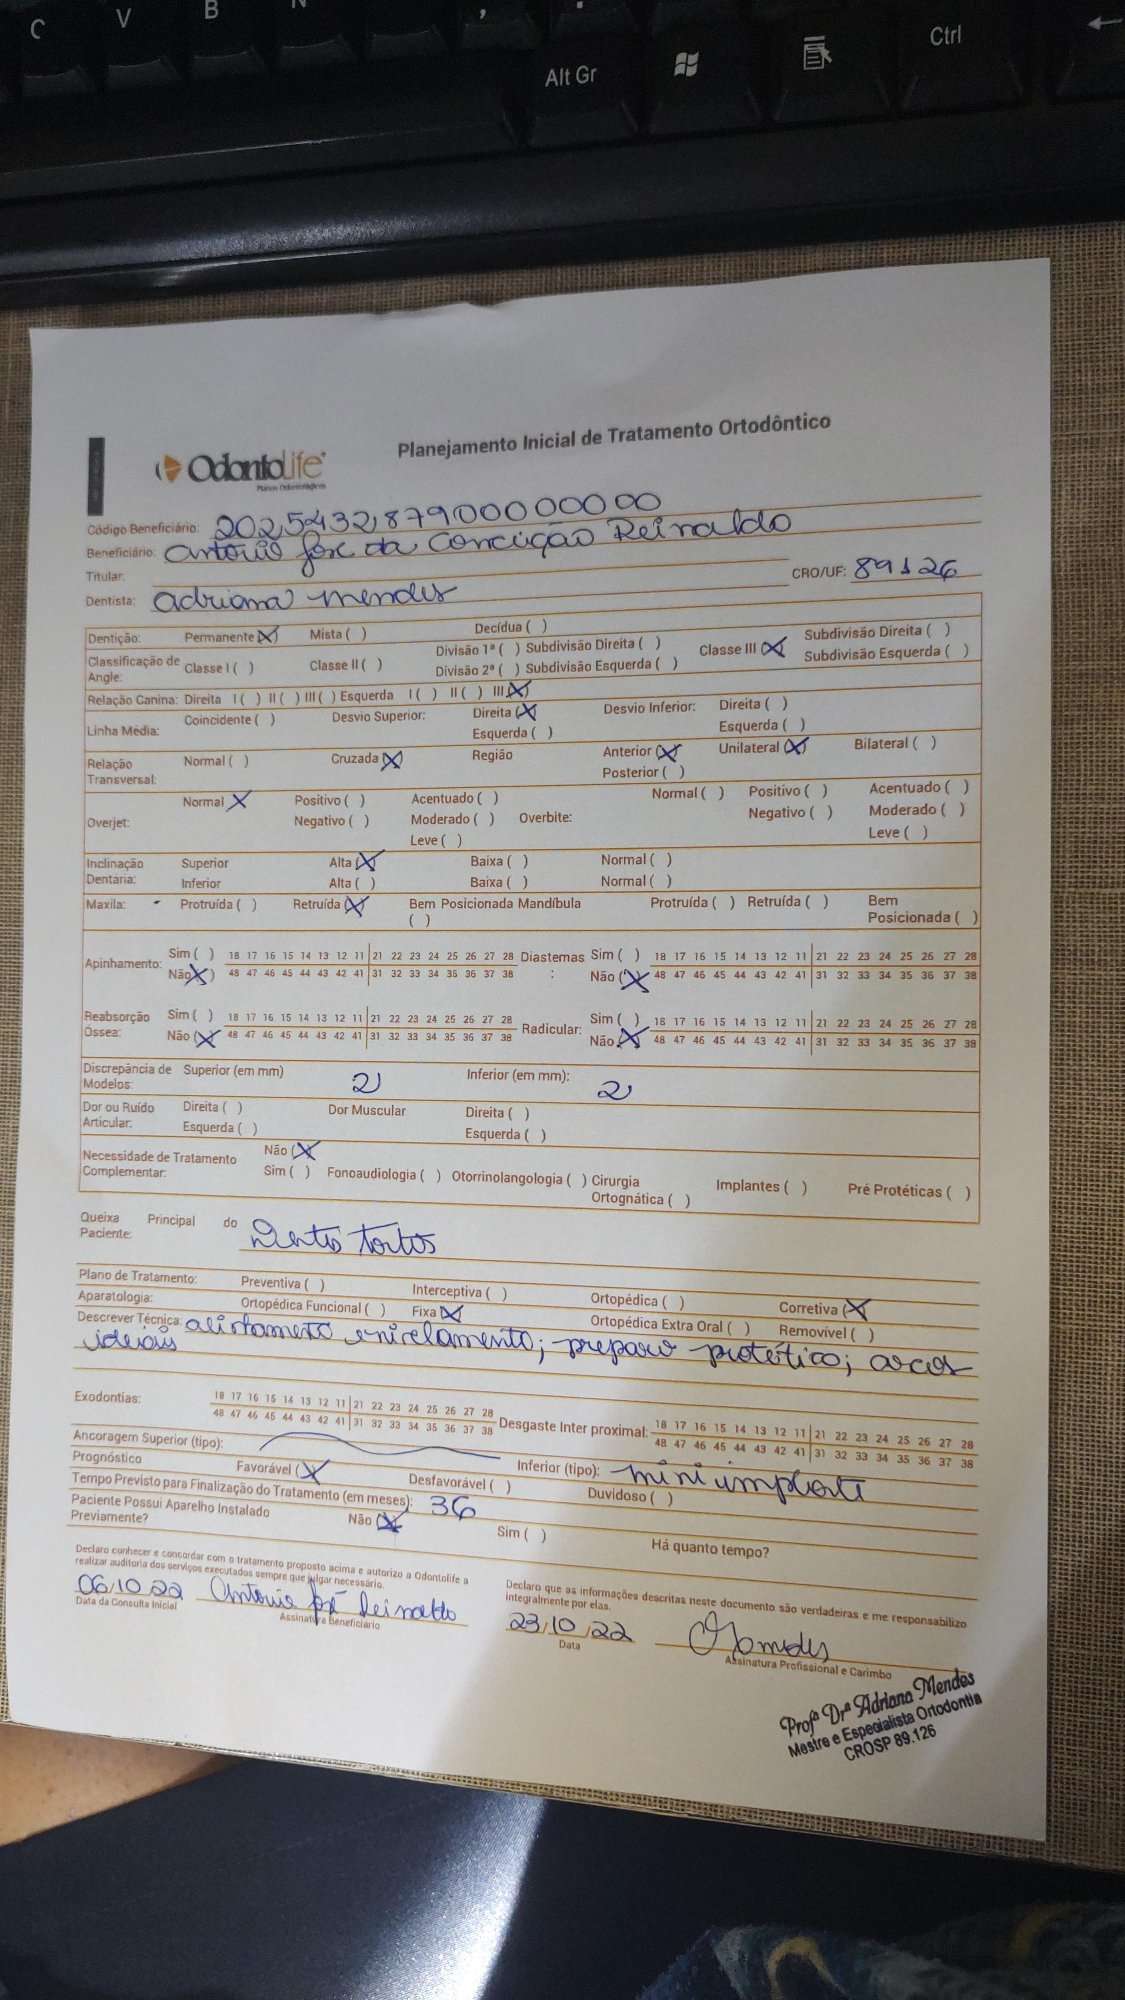 C V B N , .
Alt Gr Ctrl
Planejamento Inicial de Tratamento Ortodôntico
OdontoLife
Planos Odontológicos
Código Beneficiário: 202543287900000000
Beneficiário: Antonio Jose da Conceição Reinaldo
Titular:
Dentista: Adriana Mendes CRO/UF: 89126
Dentição: Permanente (X) Mista ( ) Decídua ( )
Classificação de Angle: Classe I ( ) Classe II ( ) Divisão 1ª ( ) Subdivisão Direita ( ) Classe III (X) Subdivisão Direita ( )
Divisão 2ª ( ) Subdivisão Esquerda ( ) Subdivisão Esquerda ( )
Relação Canina: Direita I ( ) II ( ) III ( ) Esquerda I ( ) II ( ) III (X)
Linha Média: Coincidente ( ) Desvio Superior: Direita (X) Desvio Inferior: Direita ( )
Esquerda ( ) Esquerda ( )
Relação Transversal: Normal ( ) Cruzada (X) Região Anterior (X) Unilateral (X) Bilateral ( )
Posterior ( )
Overjet: Normal X Positivo ( ) Acentuado ( ) Overbite: Normal ( ) Positivo ( ) Acentuado ( )
Negativo ( ) Moderado ( ) Negativo ( ) Moderado ( )
Leve ( ) Leve ( )
Inclinação Dentária: Superior Alta (X) Baixa ( ) Normal ( )
Inferior Alta ( ) Baixa ( ) Normal ( )
Maxila: Protruída ( ) Retruída (X) Bem Posicionada ( ) Mandíbula Protruída ( ) Retruída ( ) Bem Posicionada ( )
Apinhamento: Sim ( ) 18 17 16 15 14 13 12 11 21 22 23 24 25 26 27 28 Diastemas : Sim ( ) 18 17 16 15 14 13 12 11 21 22 23 24 25 26 27 28
Não (X) 48 47 46 45 44 43 42 41 31 32 33 34 35 36 37 38 Não (X) 48 47 46 45 44 43 42 41 31 32 33 34 35 36 37 38
Reabsorção Óssea: Sim ( ) 18 17 16 15 14 13 12 11 21 22 23 24 25 26 27 28 Radicular: Sim ( ) 18 17 16 15 14 13 12 11 21 22 23 24 25 26 27 28
Não (X) 48 47 46 45 44 43 42 41 31 32 33 34 35 36 37 38 Não (X) 48 47 46 45 44 43 42 41 31 32 33 34 35 36 37 38
Discrepância de Modelos: Superior (em mm) 2 Inferior (em mm): 2
Dor ou Ruído Articular: Direita ( ) Dor Muscular Direita ( )
Esquerda ( ) Esquerda ( )
Necessidade de Tratamento Complementar: Não (X)
Sim ( ) Fonoaudiologia ( ) Otorrinolangologia ( ) Cirurgia Ortognática ( ) Implantes ( ) Pré Protéticas ( )
Queixa Principal do Paciente: Dentes tortos
Plano de Tratamento: Preventiva ( ) Interceptiva ( ) Ortopédica ( ) Corretiva (X)
Aparatologia: Ortopédica Funcional ( ) Fixa (X) Ortopédica Extra Oral ( ) Removível ( )
Descrever Técnica: alinhamento e nivelamento; preparo protético; arcos
ideiais
Exodontias: 18 17 16 15 14 13 12 11 21 22 23 24 25 26 27 28 Desgaste Inter proximal: 18 17 16 15 14 13 12 11 21 22 23 24 25 26 27 28
48 47 46 45 44 43 42 41 31 32 33 34 35 36 37 38 48 47 46 45 44 43 42 41 31 32 33 34 35 36 37 38
Ancoragem Superior (tipo): Inferior (tipo): mini implante
Prognóstico Favorável (X) Desfavorável ( ) Duvidoso ( )
Tempo Previsto para Finalização do Tratamento (em meses): 36
Paciente Possui Aparelho Instalado Previamente? Não (X) Sim ( ) Há quanto tempo?
Declaro conhecer e concordar com o tratamento proposto acima e autorizo a Odontolife a
realizar auditoria dos serviços executados sempre que julgar necessário.
06/10/22 Antonio José Reinaldo
Data da Consulta Inicial Assinatura Beneficiário
Declaro que as informações descritas neste documento são verdadeiras e me responsabilizo
integralmente por elas.
23/10/22 AMendes
Data Assinatura Profissional e Carimbo
Profª Drª Adriana Mendes
Mestre e Especialista Ortodontia
CROSP 89.126